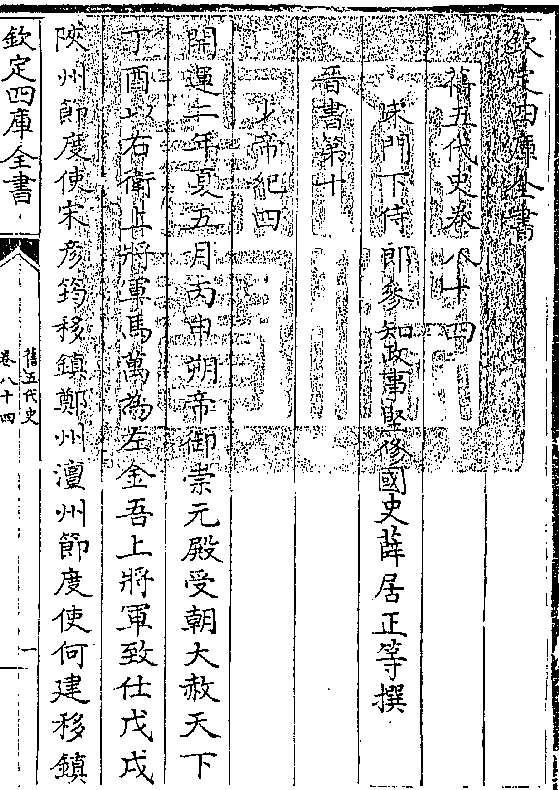 欽定四庫全書
舊五代史卷八十四
宋門下侍郎參知政事監修國史薛居正等撰
晉書第十
少帝紀四
開運二年夏五月丙申朔帝御崇元殿受朝大赦天下
丁酉以右衛上將軍馬萬為左金吾上將軍致仕戊戌
陝州節度使宋彦筠移鎮鄭州澶州節度使何建移鎮
欽定四庫全書
舊五代史
卷八十四
一